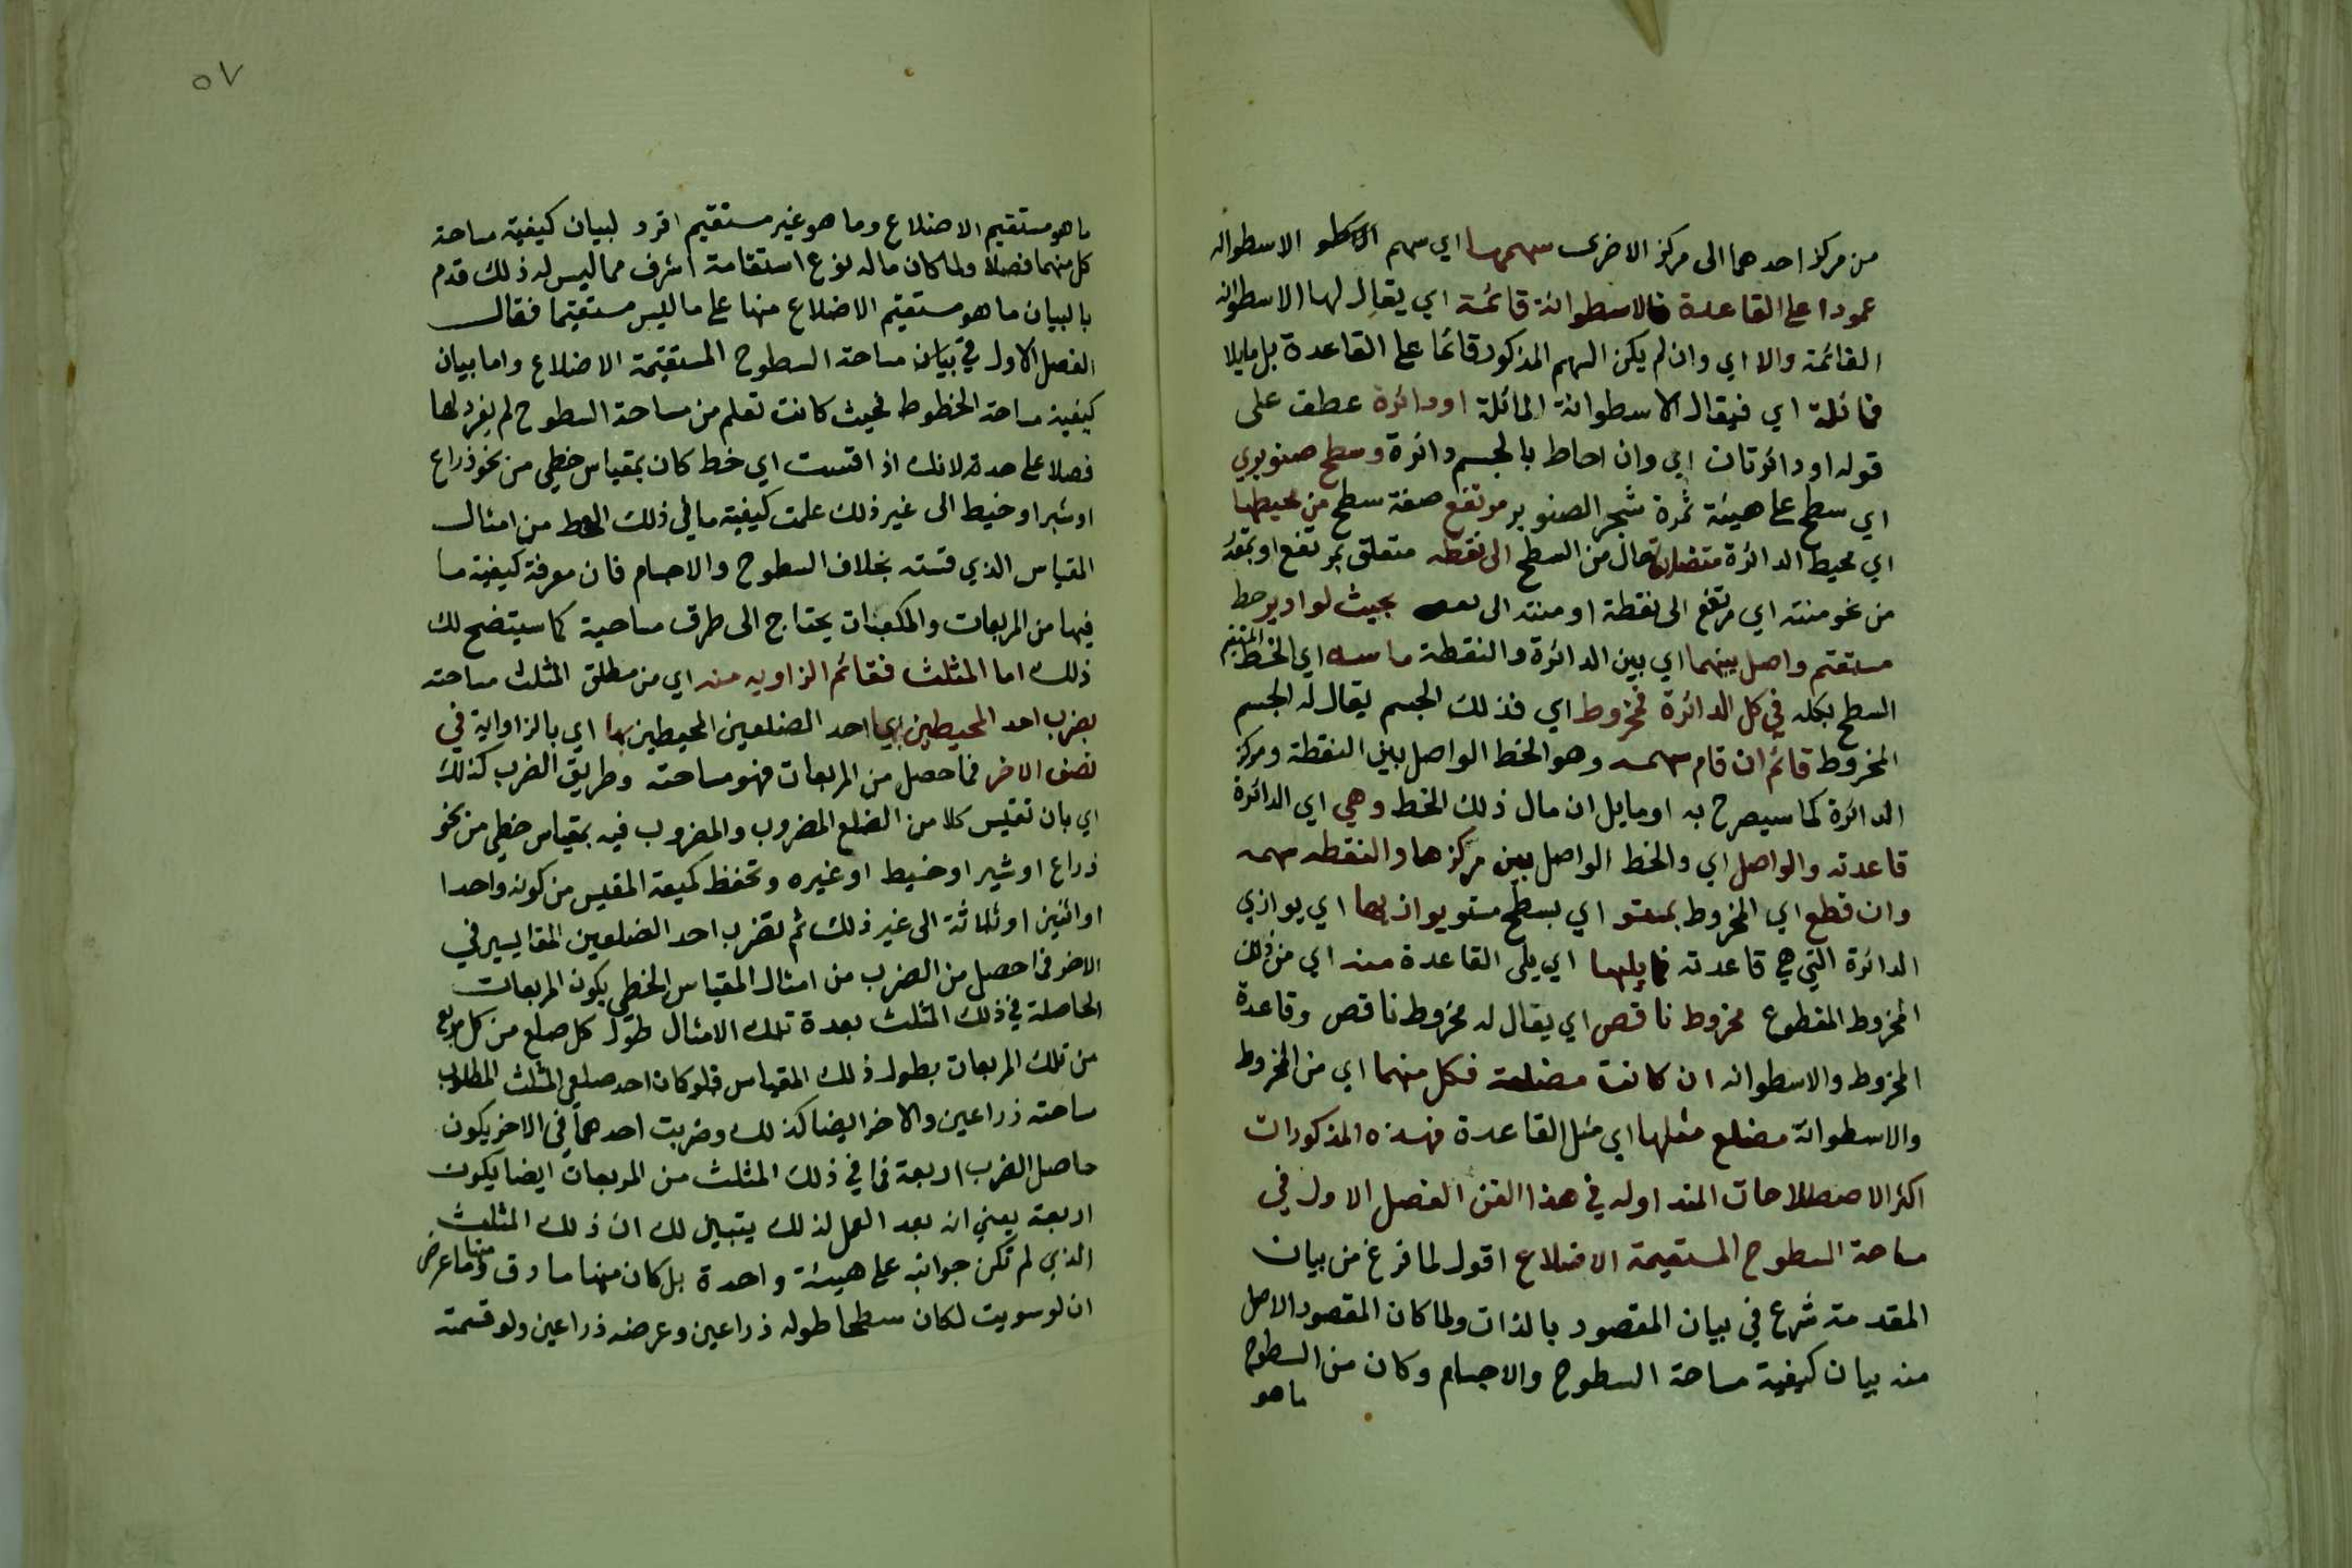 من مركز احدهما الى مركز الاخرى سهمها اي سهم الاسطو الاسطوانه
عمودا على القاعدة فالاسطوانة قائمة اي يقال لها الاسطوانه
القائمة والا اي وان لم يكن السهم المذكور قائما على القاعدة بل مايلا
فمائلة اي فيقال الاسطوانة المائلة او دائرة عطف على
قوله او دائرتان اي وان احاط بالجسم دائرة وسطح صنوبري
اي سطح على هيئة ثمرة شجر الصنوبر مرتفع صفة سطح من محيطها
اي محيط الدائرة متضايقا حال من السطح الى نقطه متعلق بمرتفع او بمقدر
من نحو منته اي مرتفع الى نقطة او منته الى نقطه بحيث لو ادير خط
مستقيم واصل بينهما اي بين الدائرة والنقطة ماسه اي الخط المستقيم
السطح بكله في كل الدائرة فمخروط اي فذلك الجسم يقال له الجسم
المخروط قائم ان قام سهمه وهو الخط الواصل بين النقطة ومركز
الدائرة كما سيصرح به او مايل ان مال ذلك الخط وهي اي الدائرة
قاعدته والواصل اي والخط الواصل بين مركزها والنقطه سهمه
وان قطع اي المخروط بمستو اي بسطح مستو يوازيها اي يوازي
الدائرة التي هي قاعدته فما يليها اي يلى القاعدة منه اي من ذلك
المخروط المقطوع مخروط ناقص اي يقال له مخروط ناقص وقاعدة
المخروط والاسطوانه ان كانت مضلعة فكل منهما اي من المخروط
والاسطوانة مضلع مثلها اي مثل القاعدة فهذه المذكورات
اكثر الاصطلاحات المتداوله في هذا الفن الفصل الاول في
مساحة السطوح المستقيمة الاضلاع اقول لما فرغ من بيان
المقدمة شرع في بيان المقصود بالذات ولما كان المقصود الاصل
منه بيان كيفية مساحة السطوح والاجسام وكان من السطوح
ما هو
٥٧
ما هو مستقيم الاضلاع وما هو غير مستقيم افرد لبيان كيفية مساحة
كل منهما فصلا ولما كان ماله نوع استقامة اشرف مما ليس له ذلك قدم
بالبيان ما هو مستقيم الاضلاع منها على ما ليس مستقيما فقال
الفصل الاول في بيان مساحة السطوح المستقيمة الاضلاع واما بيان
كيفية مساحة الخطوط فحيث كانت تعلم من مساحة السطوح لم يفرد لها
فصلا على حدة لانك اذا قست اي خط كان بمقياس خطي من نحو ذراع
او شبر او خيط الى غير ذلك علمت كيفية ما في ذلك الخط من امثال
المقياس الذي قسته بخلاف السطوح والاجسام فان معرفة كيفية ما
فيها من المربعات والمكعبات يحتاج الى طرق مساحية كما سيتضح لك
ذلك اما المثلث فقائم الزاويه منه اي من مطلق المثلث مساحته
بضرب احد المحيطين اي احد الضلعين المحيطين بها اي بالزاواية في
نصف الاخر فما حصل من المربعات فهو مساحته وطريق الضرب كذلك
اي بان تقيس كلا من الضلع المضروب والمضروب فيه بمقياس خطي من نحو
ذراع او شبر او خيط او غيره وتحفظ كمية المقيس من كونه واحدا
او اثنين او ثلاثة الى غير ذلك ثم تضرب احد الضلعين المقايسير في
الاخر فما حصل من الضرب من امثال المقياس الخطي يكون المربعات
الحاصلة في ذلك المثلث بعدة تلك الامثال طول كل ضلع من كل مربع
من تلك المربعات بطول ذلك المقياس فلو كان احد ضلعي المثلث المطلوب
مساحته ذراعين والاخر ايضا كذلك وضربت احدهما في الاخر يكون
حاصل الضرب اربعة فما في ذلك المثلث من المربعات ايضا يكون
اربعة يعني ان بعد العمل لذلك يتبين لك ان ذلك المثلث
الذي لم تكن جوانبه على هيئة واحدة بل كان منها ما دق ومنها ما عرض
ان لو سويت لكان سطحا طوله ذراعين وعرضه ذراعين ولو قسمته